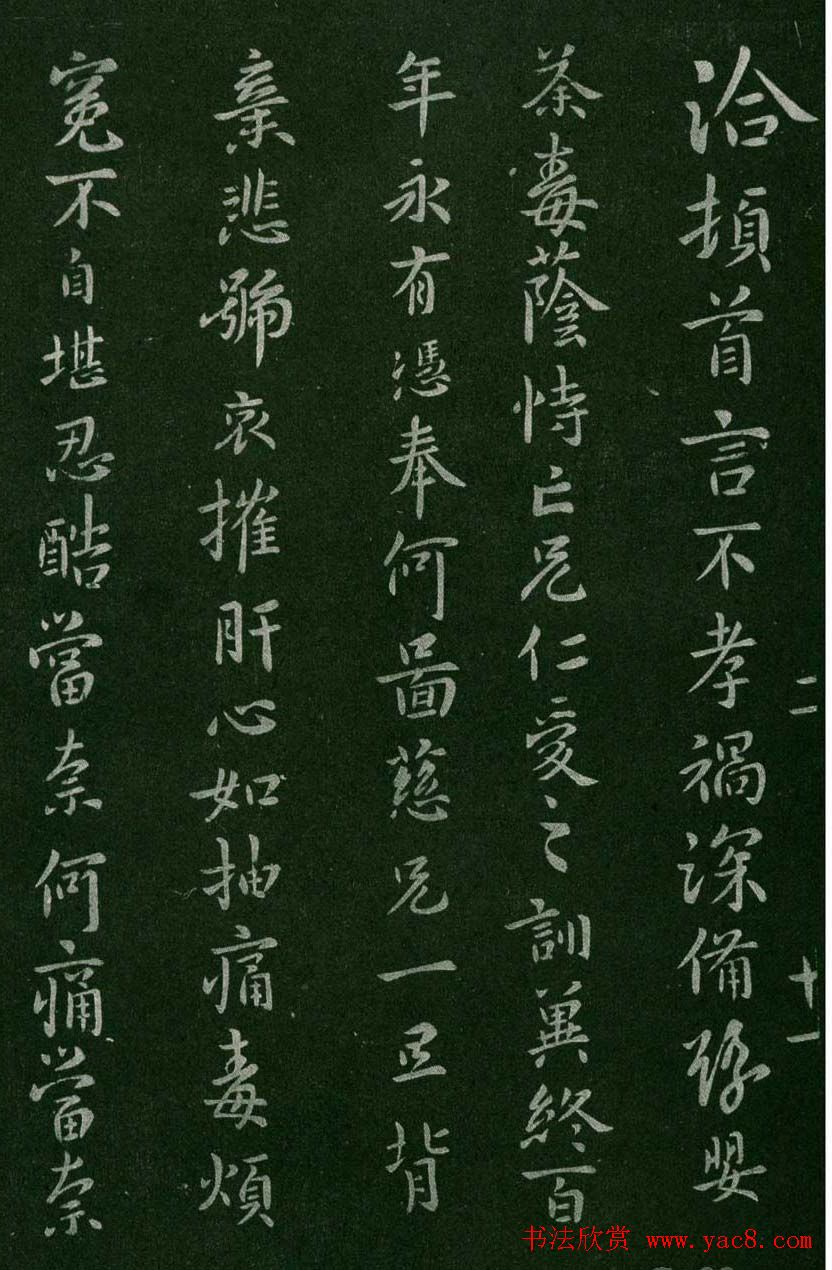 洽頓首言不孝禍深備豫嬰
荼毒蔭恃亡兄仁愛之訓冀終百
年永有憑奉何圖慈兄一旦背
棄悲號哀摧肝心如抽痛毒煩
冤不自堪忍酷當奈何痛當奈
二
十一
书法欣赏 www.yac8.com